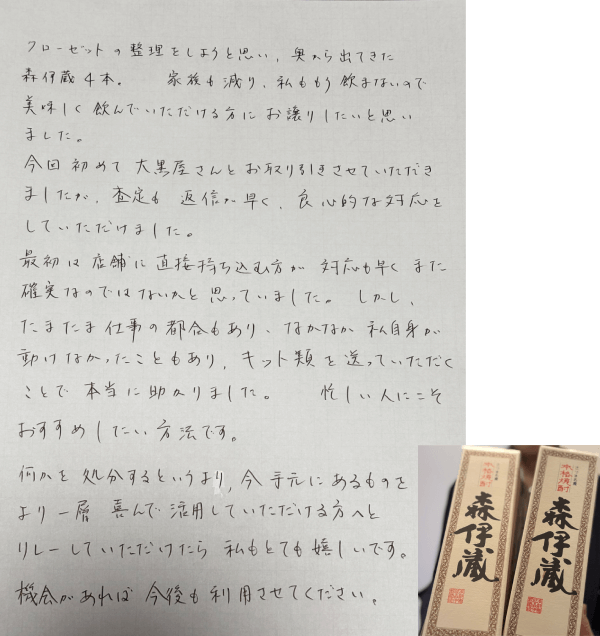 クローゼットの整理をしようと思い、奥から出てきた
森伊蔵4本。 家族も減り、私ももう飲まないので
美味しく飲んでいただける方にお譲りしたいと思い
ました。
今回初めて大黒屋さんとお取り引きさせていただき
ましたが、査定も返信が早く、良心的な対応を
していただけました。
最初は店舗に直接持ち込む方が対応も早くまた
確実なのではないかと思っていました。しかし、
たまたま仕事の都合もあり、なかなか私自身が
動けなかったこともあり、キット類を送っていただく
ことで本当に助かりました。 忙しい人にこそ
おすすめしたい方法です。
何かを処分するというより、今手元にあるものを
より一層喜んで活用していただける方へと
リレーしていただけたら私もとても嬉しいです。
機会があれば今後も利用させてください。
本格焼酎
森伊蔵
本格焼酎
森伊蔵